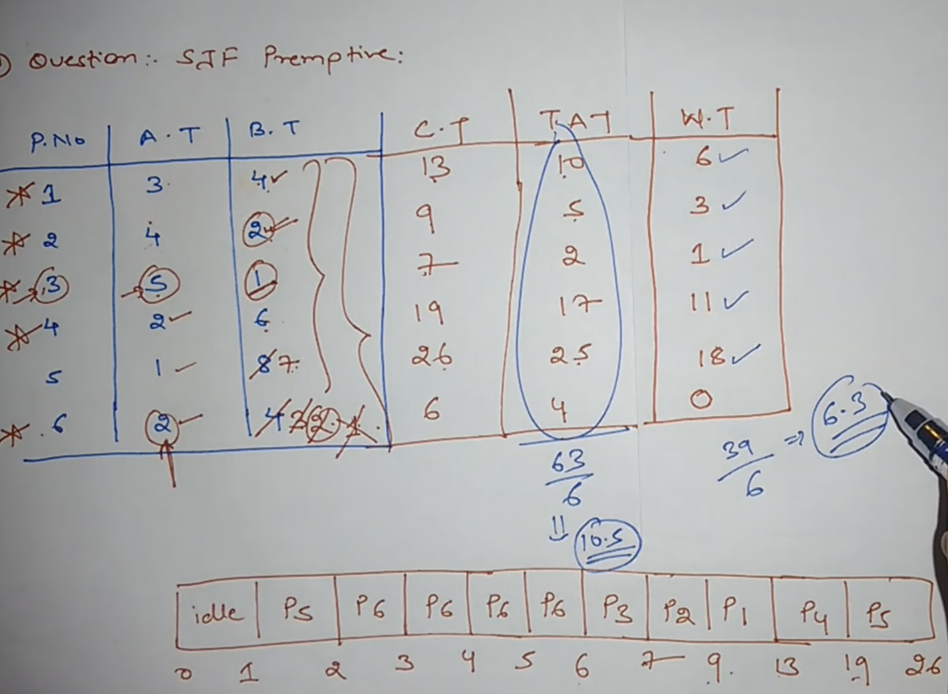 Question:- SJF Premptive:
P.No A.T B.T C.T T.A.T W.T
1 3 4 13 10 6
2 4 2 9 5 3
3 5 1 7 2 1
4 2 6 19 17 11
5 1 8 7 26 25 18
6 2 4 3 2 1 6 4 0
63/6 39/6 ⇒ 6.3
= 10.5
idle P5 P6 P6 P6 P6 P3 P2 P1 P4 P5
0 1 2 3 4 5 6 7 9 13 19 26